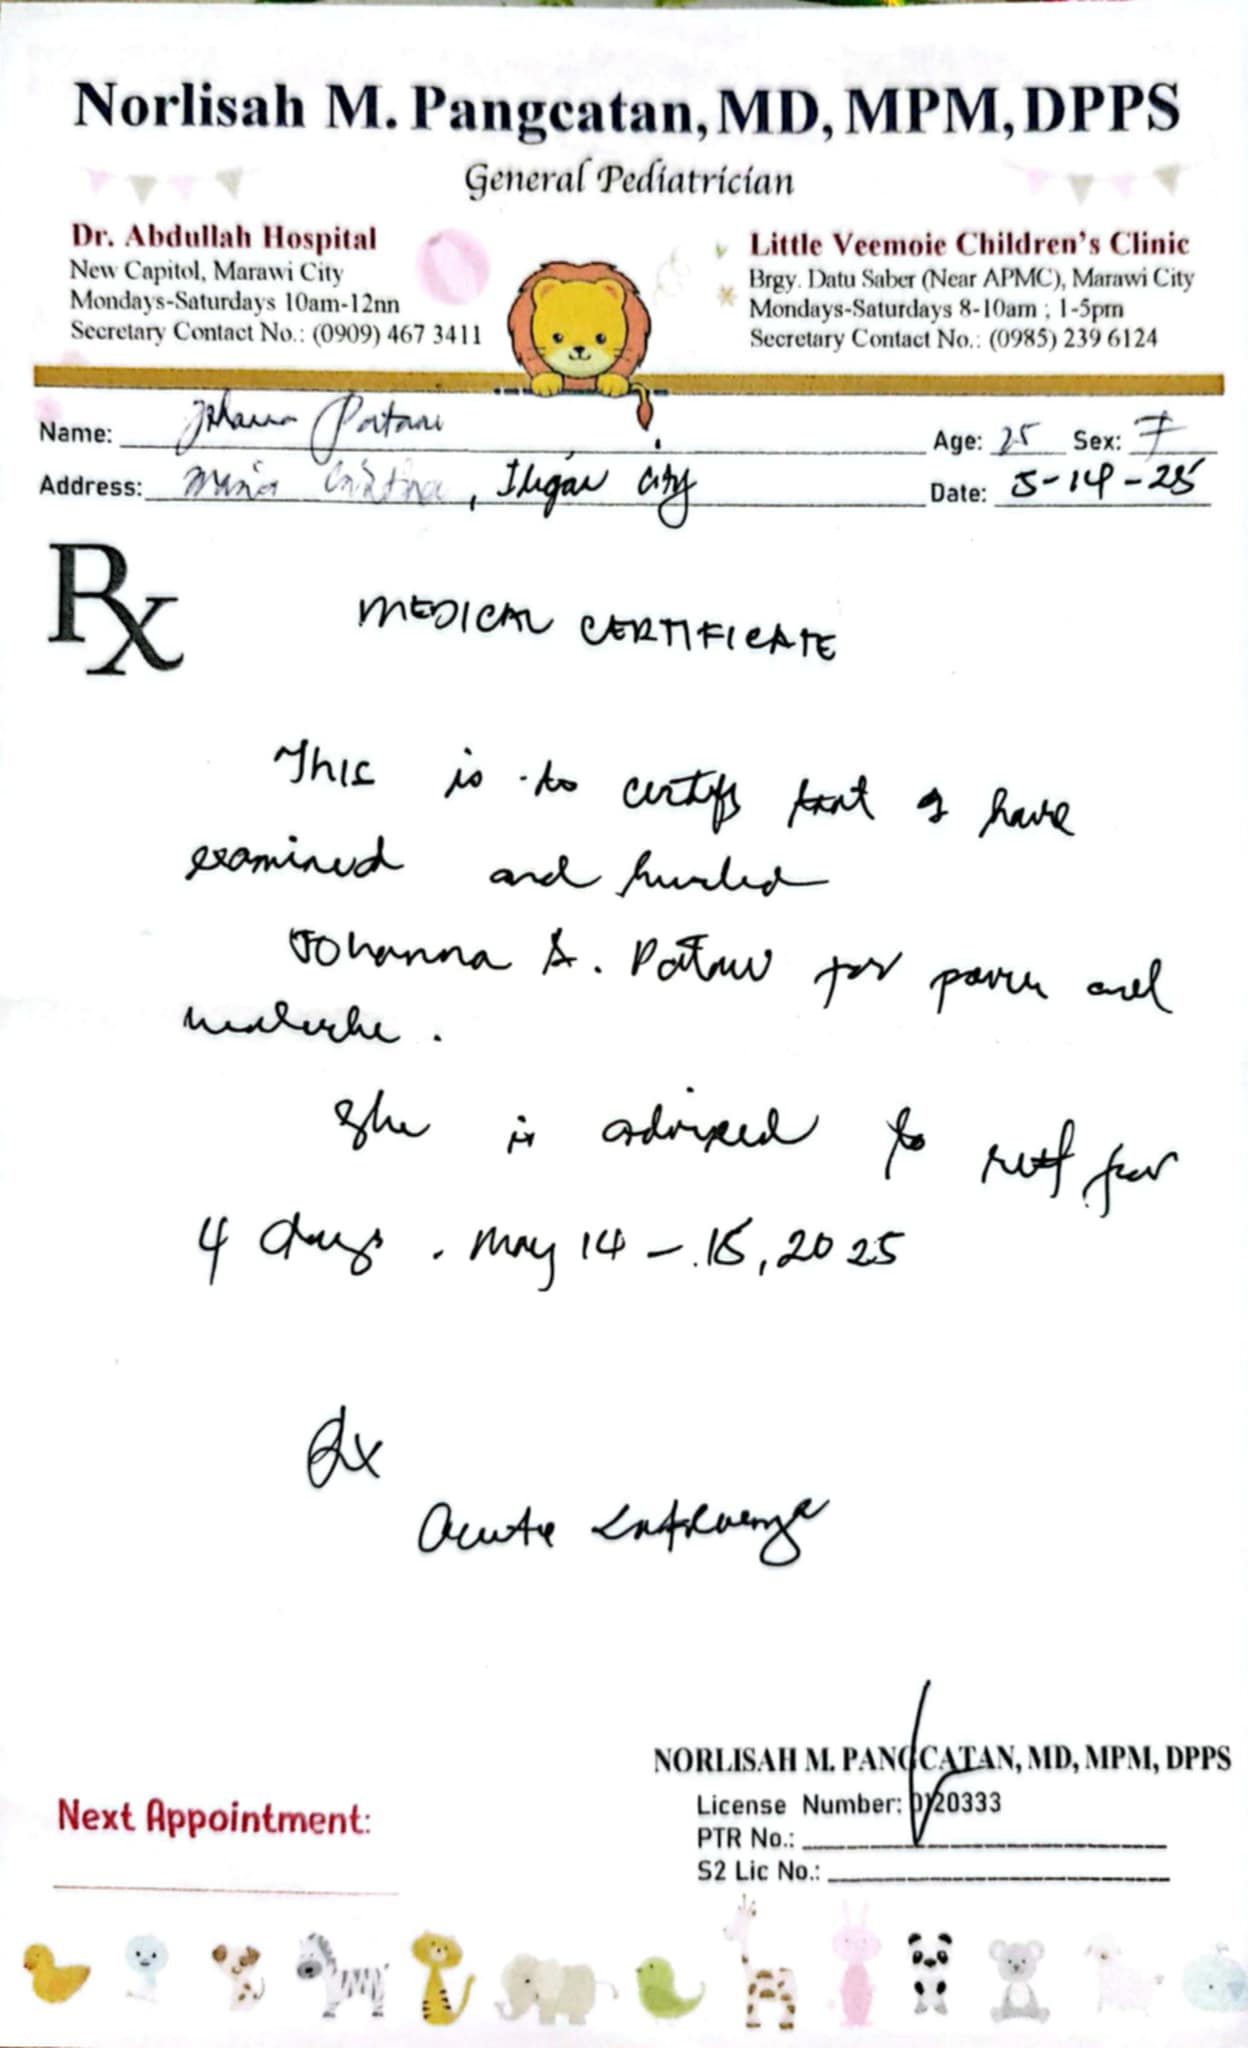 Norlisah M. Pangcatan, MD, MPM, DPPS
General Pediatrician
Dr. Abdullah Hospital
New Capitol, Marawi City
Mondays-Saturdays 10am-12nn
Secretary Contact No.: (0909) 467 3411
Little Veemoie Children's Clinic
Brgy. Datu Saber (Near APMC), Marawi City
Mondays-Saturdays 8-10am ; 1-5pm
Secretary Contact No.: (0985) 239 6124
Name:
Age: 25 Sex: F
Address: Maria Cristina, Iligan City
Date: 5-14-25
Rx
MEDICAL CERTIFICATE
This is to certify that I have
examined and
Johanna A. for and
She is advised to rest for
4 days. May 14 - 2025
Dx
Acute Influenza
NORLISAH M. PANGCATAN, MD, MPM, DPPS
License Number: 0120333
PTR No.:
S2 Lic No.:
Next Appointment: